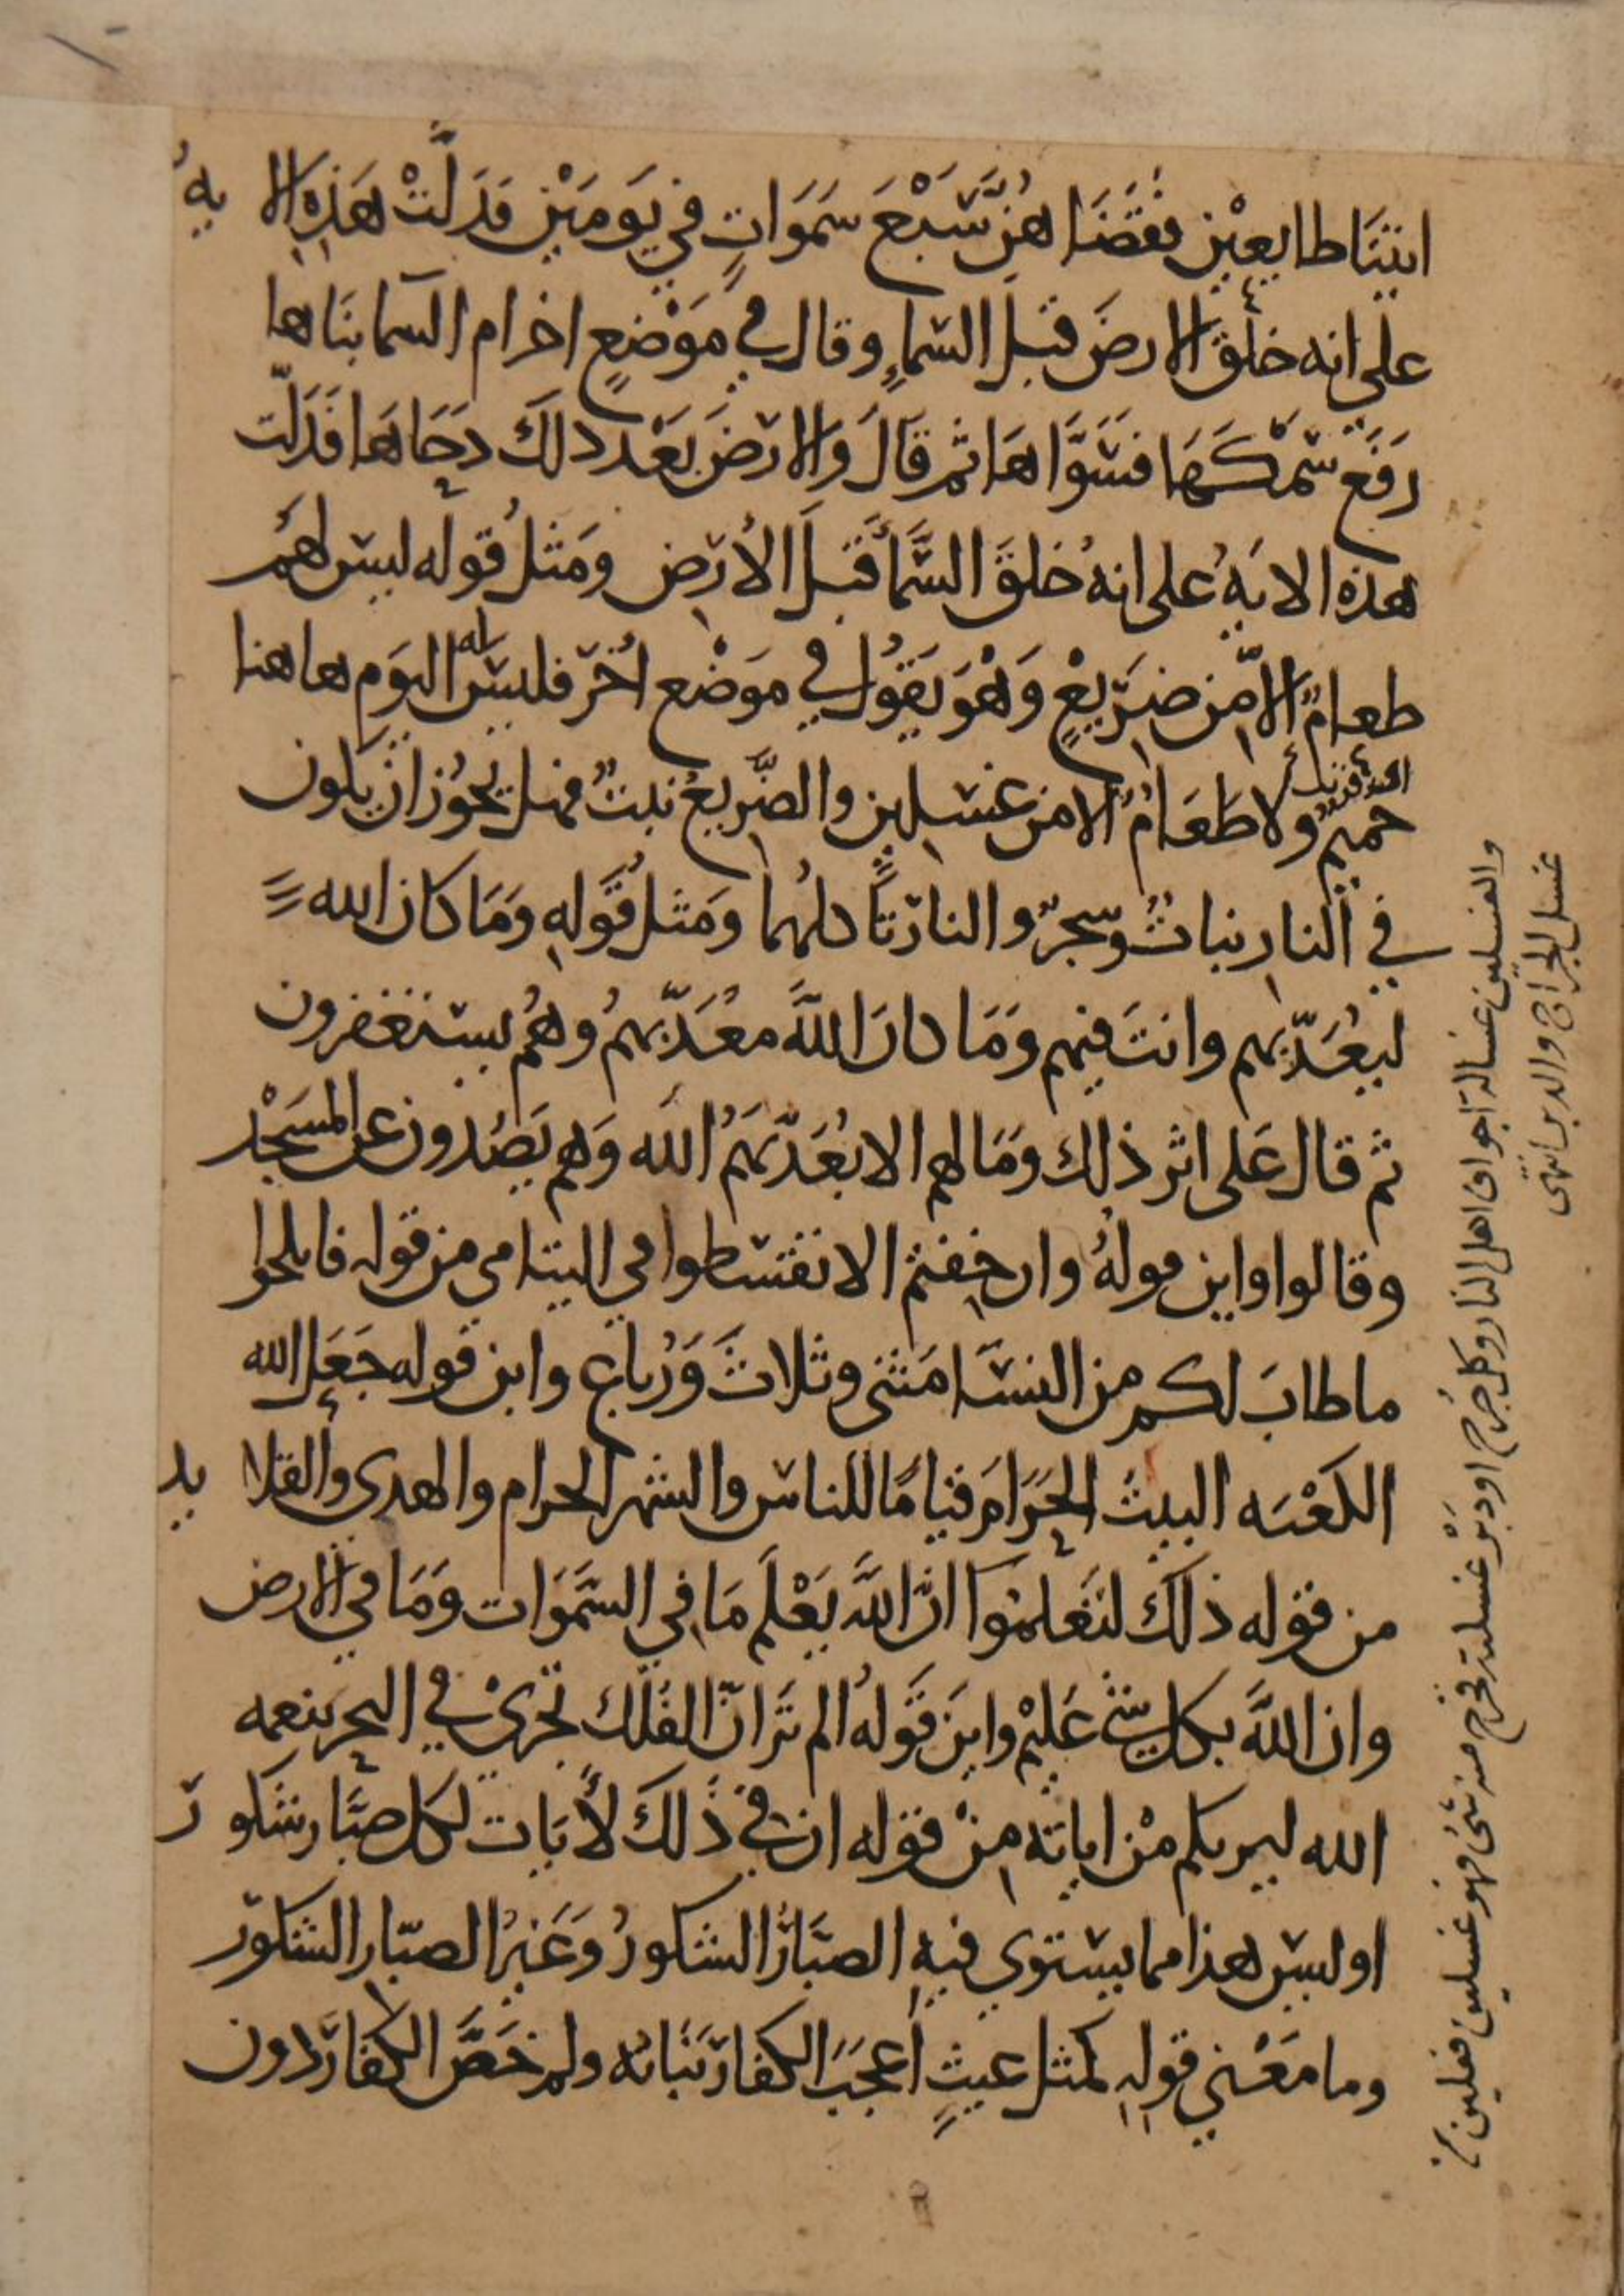 اتينَا طايعِيْن فقَضَاهُنَّ سَبْعَ سَمَوَاتٍ في يَومَيْن فدَلَّتْ هَذِهِ الايهُ
على انه خلق الارضَ قبل السّماءِ وقال في مَوْضعٍ اخر ام السما بنَاها
رَفَعَ سَمْكَهَا فسَوَّاهَا ثم قَالَ والارْضَ بَعْد ذلكَ دَحَاهَا فدَلّت
هذه الايَهُ على انهُ خلقَ السَّمَا قبلَ الأرض ومَثلُ قوله ليس لهُم
طعامٌ الا مِّن ضرَيعٍ وَهْوَ يَقوُل في موَضْع اخَر فليسَ له اليَوم هاهنا
حَميمٌ ولا طَعَامٌ الا من غسلين والضّريعُ نبتٌ فهل يجوُز ان يكون
في النارِ نباتٌ وشجرٌ والنارُ تأكلهُما ومَثلُ قوَلهِ ومَا كان الله
ليعُذّبهم وانتَ فيهم ومَا كانَ اللهُ معُذّبهمُ وهُم يستغفرون
ثم قال عَلى اثر ذلك ومَا لهم الا يعُذّبهَمُ الله وَهم يَصُدون عن المسَجْد
وقالوا واين قولهُ وان خِفتم الا تقسطوا في اليتامى من قوله فانكحوا
ما طابَ لكم من النسَا مَثنى وثلاثَ وَرُباع واين قوله جَعَل الله
الكعْبَه البيتَ الحَرَامَ قيامًا للناس والشهر الحرام والهدى والقلايد
من قوله ذلكَ لتَعْلموُا انّ اللهَ يَعْلَم مَا في السَّمَوَات ومَا في الارض
وان اللهَ بكل شيٍ عَليْم واين قَولهُ الم تَر انّ الفلكَ تجْرىْ في البحر بنعمه
الله ليريكم مْن اياته منْ قوله ان في ذَلكَ لأيَات لكل صبَّار شكور
اوليس هذا مما يستوي فيهِ الصبَّارُ الشكورُ وَغَيرُ الصبّار الشكور
وما مَعْني قوله كمثل غيثٍ أعجَبَ الكفارَ نبَاتُه ولم خَصَّ الكفارَ دون
والغسلين غسالة اجواف اهل النار وكل جُرح او دَبَرْ غسلته فخرج منه شئ فهو غسلين فعلين من
غسل الجراح والدبر انتهى